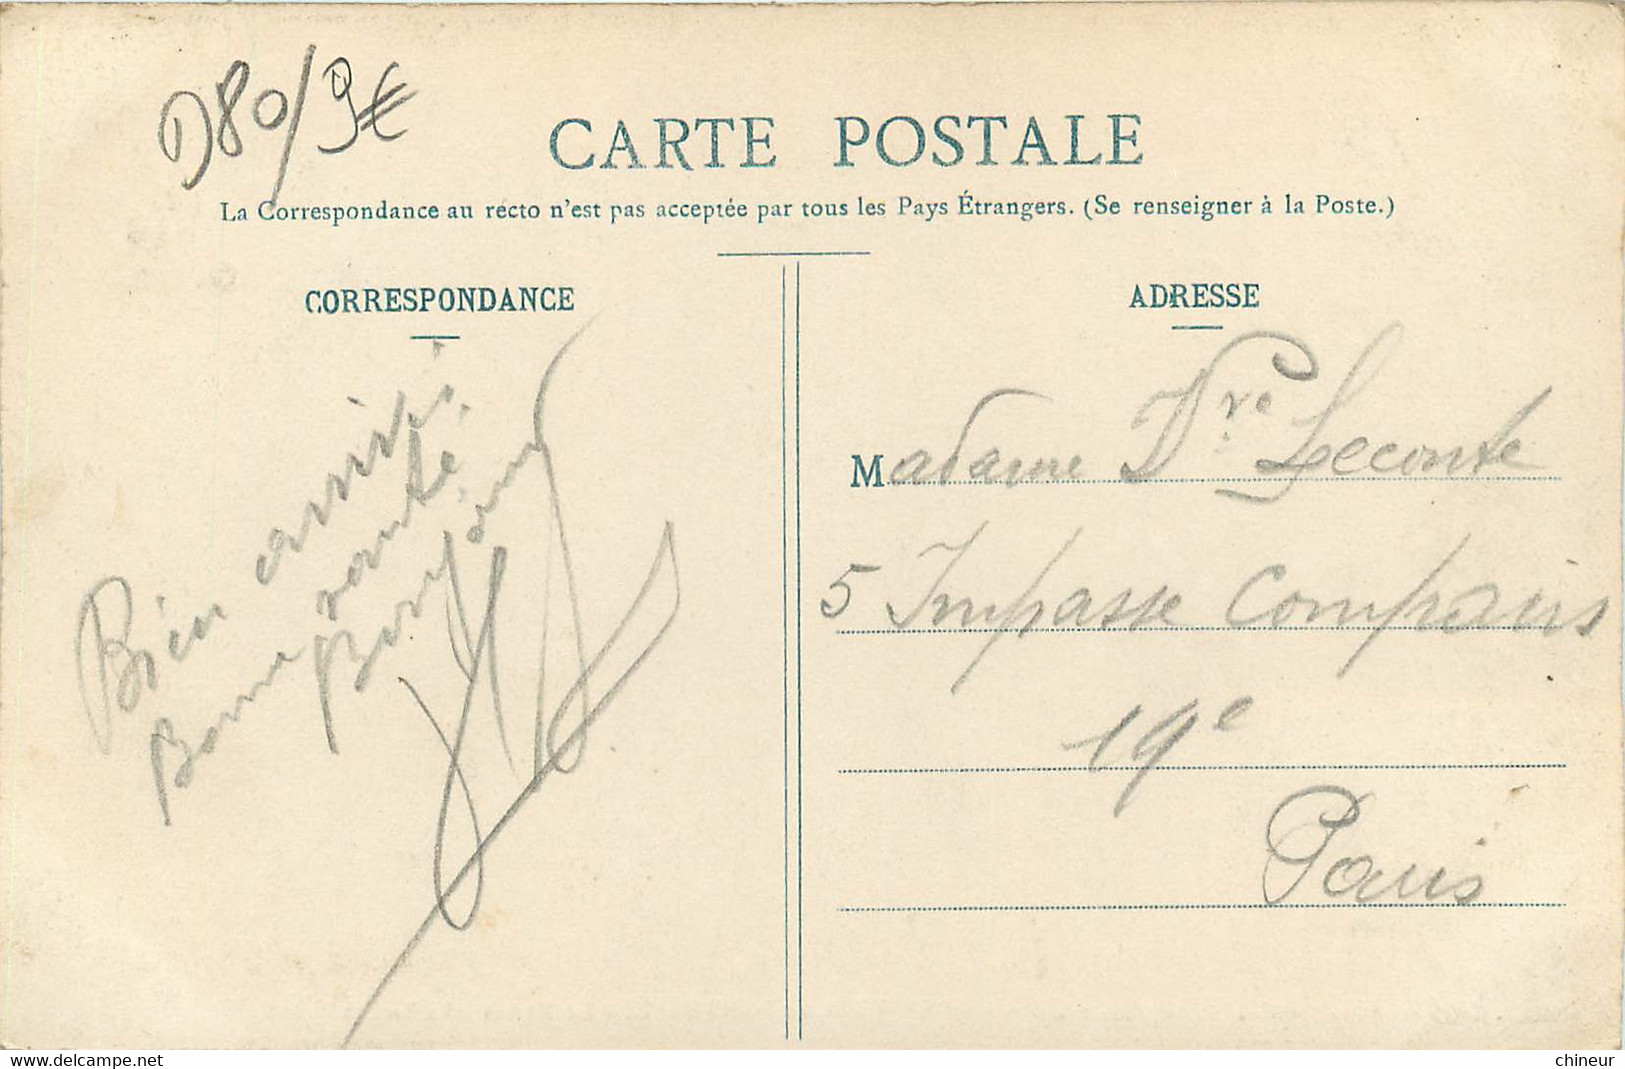 D80/9€
CARTE POSTALE
La Correspondance au recto n'est pas acceptée par tous les Pays Étrangers. (Se renseigner à la Poste.)
CORRESPONDANCE
Bien arrivé.
Bonne santé.
Bonjour
ADRESSE
Madame Vve Leconte
5 Impasse Compains
19e
Paris
www.delcampe.net
chineur